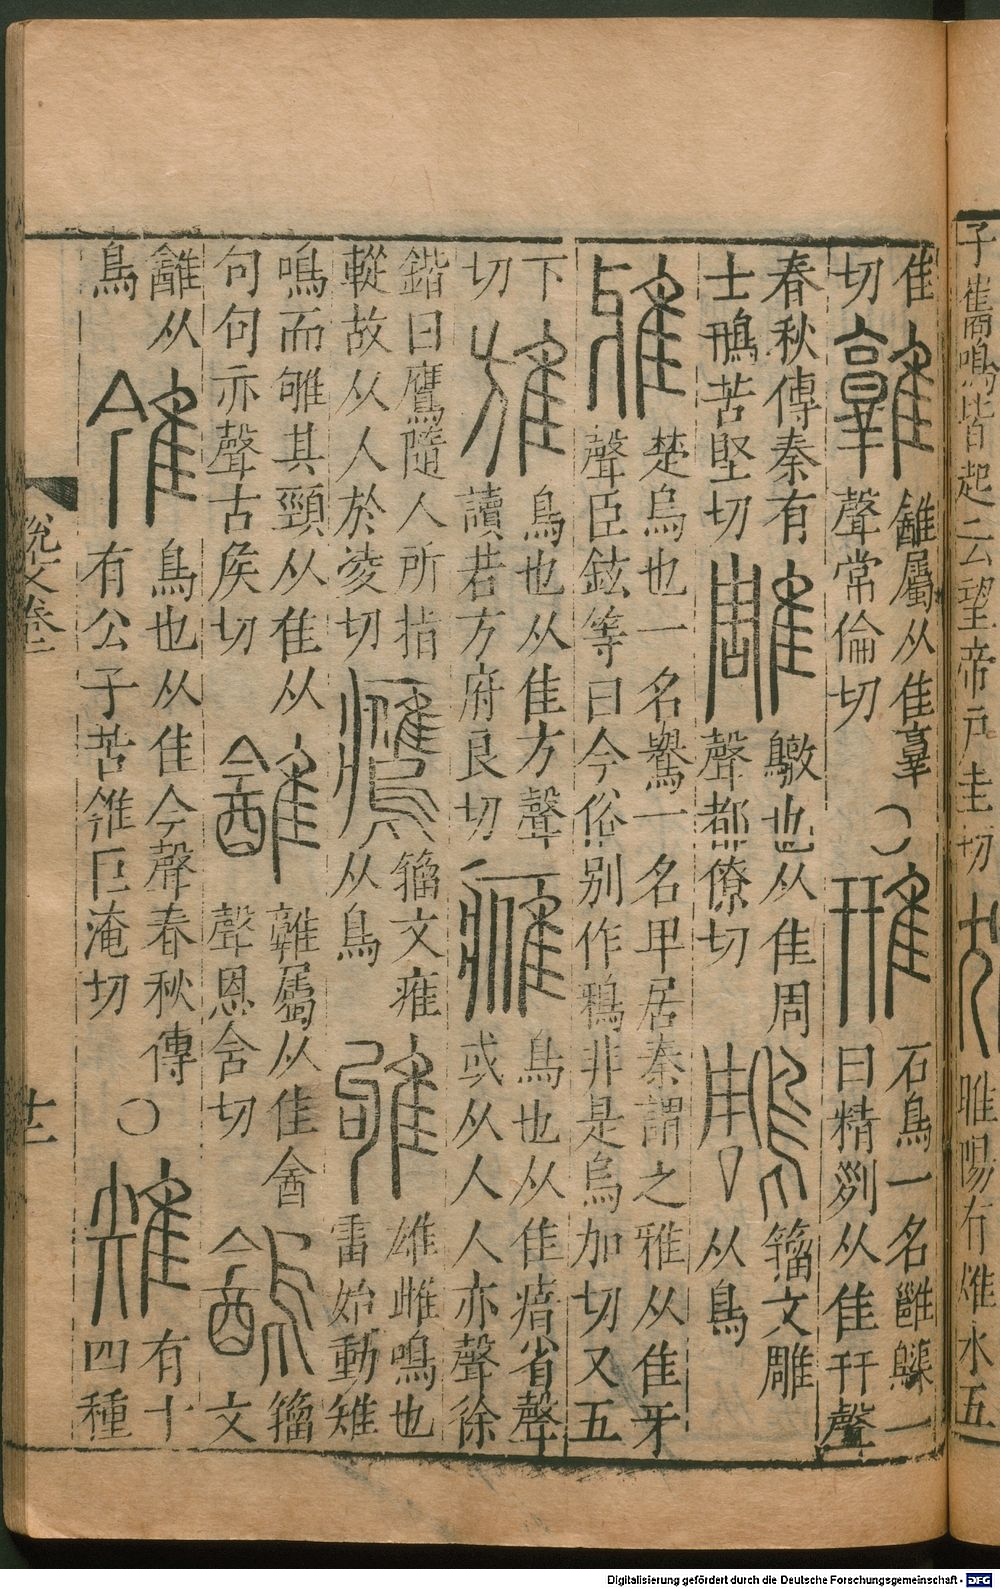 子巂鳴皆起云望帝戶圭切
睢陽有𨾴水五
隹
切
䨄
𨿯屬从隹𦎫
聲常倫切
○
雃
石鳥一名雝䳭一
曰精列从隹幵聲
春秋傳秦有
士鳽苦堅切
雕
鷻也从隹周
聲都僚切
鵰
籒文雕
从鳥
雅
楚烏也一名鸒一名卑居秦謂之雅从隹牙
聲臣鉉等曰今俗別作鴉非是烏加切又五
下
切
鳥也从隹方聲
讀若方府良切
鳥也从隹瘖省聲
或从人人亦聲徐
鍇曰鷹隨人所指
䡮故从人於凌切
鷹
籒文雁
从鳥
雊
雄雌鳴也
雷始動雉
鳴而雊其頸从隹从
句句亦聲古矦切
𨿯
䨄屬从隹酓
聲恩含切
籒
文
𨿯从
鳥
雂
鳥也从隹今聲春秋傳
有公子苦雂巨淹切
○
雉
有十
四種
說文卷